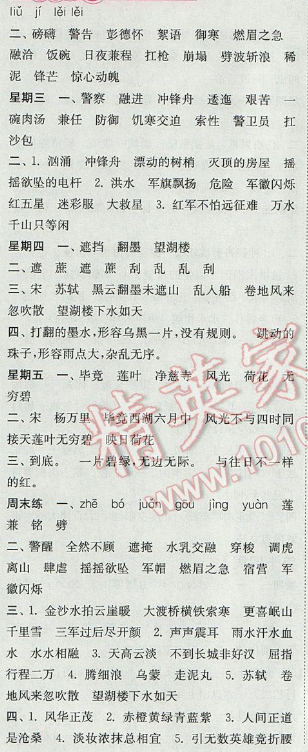 liǔ jí lěi lěi
二、磅礴 警告 彭德怀 絮语 御寒 燃眉之急
融洽 饭碗 日夜兼程 扛枪 崩塌 劈波斩浪 稀
泥 锋芒 惊心动魄
星期三 一、警察 融进 冲锋舟 逶迤 艰苦 一
碗肉汤 兼任 防御 饥寒交迫 索性 警卫员 扛
沙包
二、1. 汹涌 冲锋舟 漂动的树梢 灭顶的房屋 摇
摇欲坠的电杆 2. 洪水 军旗飘扬 危险 军徽闪烁
红五星 迷彩服 大救星 3. 红军不怕远征难 万水
千山只等闲
星期四 一、遮挡 翻墨 望湖楼
二、遮 蔗 遮 蔗 刮 乱 乱 刮
三、宋 苏轼 黑云翻墨未遮山 乱人船 卷地风来
忽吹散 望湖楼下水如天
四、打翻的墨水,形容乌黑一片,没有规则。 跳动的
珠子,形容雨点大,杂乱无序。
星期五 一、毕竟 莲叶 净慈寺 风光 荷花 无
穷碧
二、宋 杨万里 毕竟西湖六月中 风光不与四时同
接天莲叶无穷碧 映日荷花
三、到底。 一片碧绿,无边无际。 与往日不一样
的红。
周末练 一、zhē bó juǎn gou jìng yuàn 莲
兼 铭 劈
二、警醒 全然不顾 遮掩 水乳交融 穿梭 调虎
离山 肆虐 摇摇欲坠 军帽 燃眉之急 宿营 军
徽闪烁
三、1. 金沙水拍云崖暖 大渡桥横铁索寒 更喜岷山
千里雪 三军过后尽开颜 2. 声声震耳 雨水汗水血
水 水水相融 3. 天高云淡 不到长城非好汉 屈指
行程二万 4. 腾细浪 乌蒙 走泥丸 5. 苏轼 卷
地风来忽吹散 望湖楼下水如天
四、1. 风华正茂 2. 赤橙黄绿青蓝紫 3. 人间正道
是沧桑 4. 淡妆浓抹总相宜 5. 引无数英雄竞折腰
精英家
1010